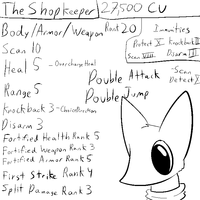 The Shopkeeper | 27,500 CU
Body/Armor/Weapon Rank 20
Scan 10
Heal 5 - Overcharge Heal
Range 5
Knockback 3 - Choice Direction
Disarm 3
Fortified Health Rank 5
Fortified Weapon Rank 3
Fortified Armor Rank 5
First Strike Rank 4
Split Damage Rank 3
Immunities
Detect X Knockback III
Scan VIII Disarm III
-Scan
Detect X
Double Attack
Double Jump